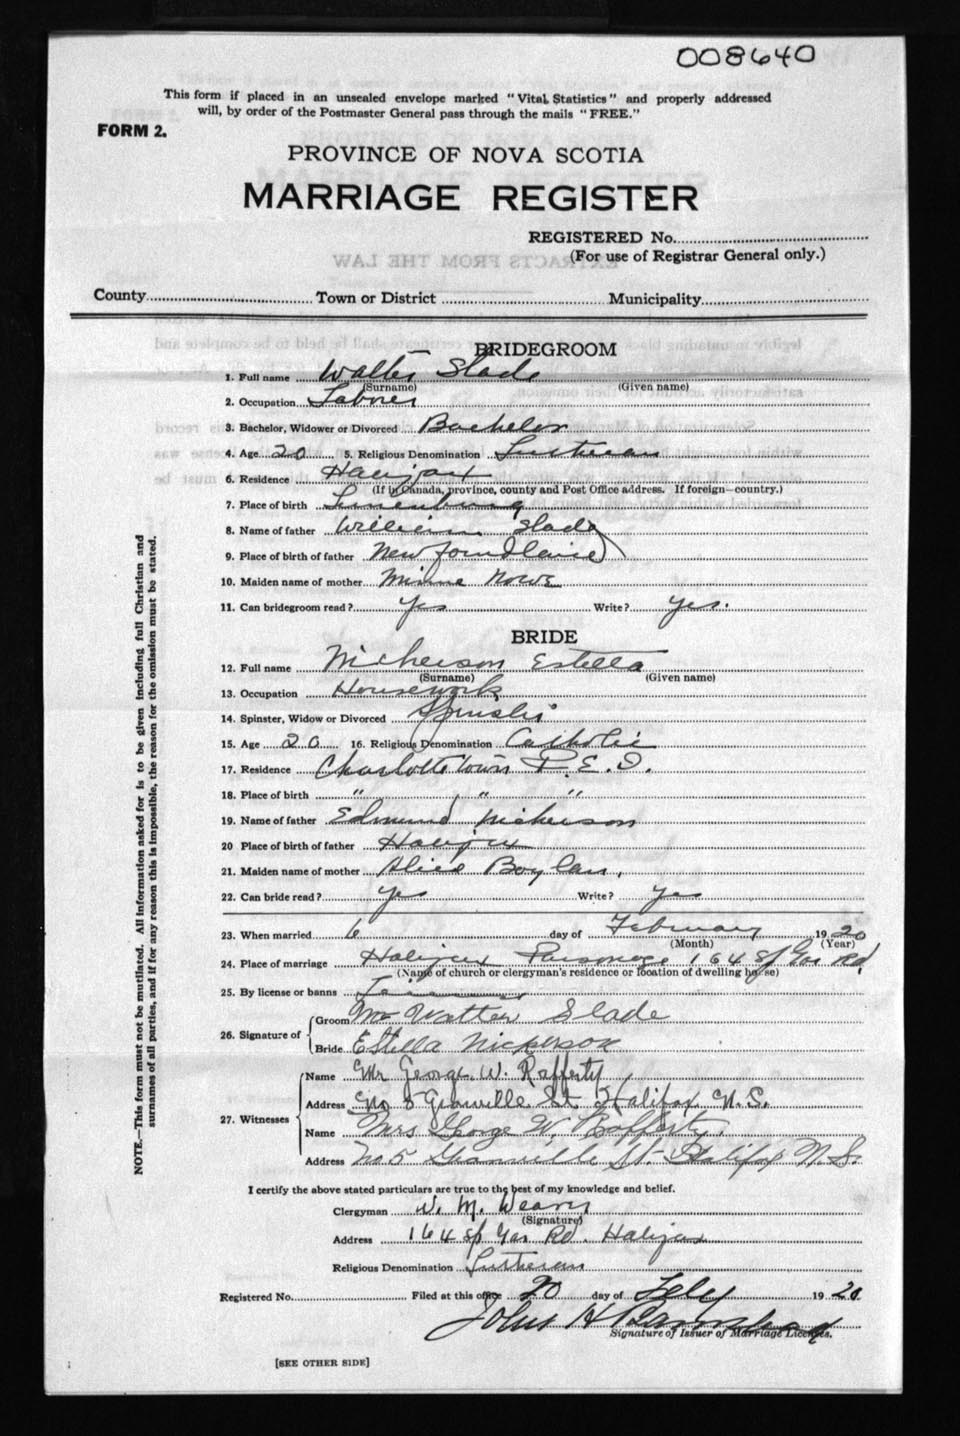 008640
This form if placed in an unsealed envelope marked "Vital Statistics" and properly addressed
will, by order of the Postmaster General pass through the mails "FREE."
FORM 2.
PROVINCE OF NOVA SCOTIA
MARRIAGE REGISTER
REGISTERED No.
(For use of Registrar General only.)
EXTRACTS FROM THE LAW
County Town or District Municipality
BRIDEGROOM
1. Full name Walter Slade
(Surname) (Given name)
2. Occupation Laborer
3. Bachelor, Widower or Divorced Bachelor
4. Age 20 5. Religious Denomination Lutheran
6. Residence Halifax
(If in Canada, province, county and Post Office address. If foreign—country.)
7. Place of birth Lunenburg
8. Name of father William Slade
9. Place of birth of father Newfoundland
10. Maiden name of mother Minnie
11. Can bridegroom read? Yes Write? yes.
BRIDE
12. Full name Nickerson Estella
(Surname) (Given name)
13. Occupation Housework
14. Spinster, Widow or Divorced Spinster
15. Age 20 16. Religious Denomination Catholic
17. Residence Charlottetown P.E.I.
18. Place of birth " " "
19. Name of father Edmund Nickerson
20 Place of birth of father Halifax
21. Maiden name of mother Alice Boylan.
22. Can bride read? yes Write? yes
23. When married 6 day of February 1920
(Month) (Year)
24. Place of marriage Halifax Parsonage 164 Sp Gar Rd.
(Name of church or clergyman's residence or location of dwelling house)
25. By license or banns
26. Signature of Groom Mr Walter Slade
Bride Estella Nickerson
27. Witnesses Name Mr George W. Rafferty
Address No 5 Granville St Halifax N.S.
Name Mrs George W. Rafferty.
Address No 5 Granville St. Halifax N.S.
I certify the above stated particulars are true to the best of my knowledge and belief.
Clergyman W. M. Weaver
(Signature)
Address 164 Sp Gar Rd. Halifax
Religious Denomination Lutheran
Registered No. Filed at this office 20 day of Feby 1920
John H
Signature of Issuer of Marriage Licenses.
[SEE OTHER SIDE]
NOTE.—This form must not be mutilated. All information asked for is to be given including full Christian and
surnames of all parties, and if for any reason this is impossible, the reason for the omission must be stated.